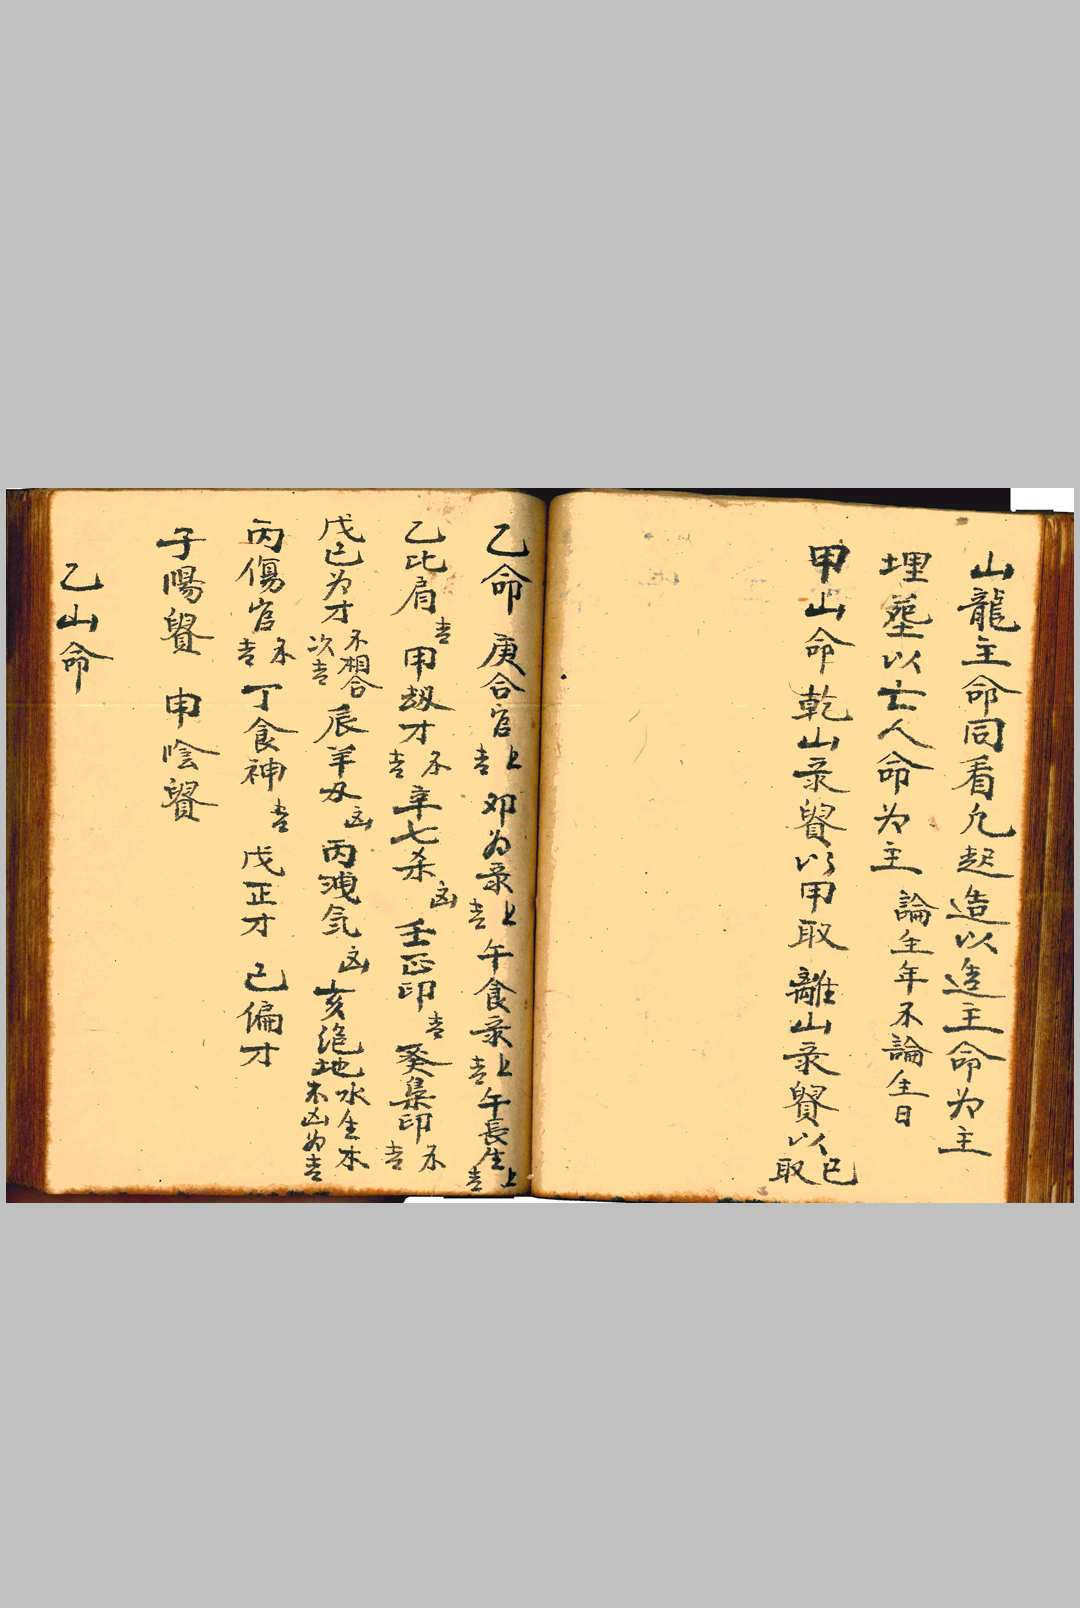 山龍主命同看凡起造以造主命为主
埋塟以亡人命为主 論生年不論生日
甲山命 乾山彔貴以甲取 離山彔貴以己取
乙命 庚合官上吉 卯为彔上吉 午食彔上吉 午長生上吉
乙比肩吉 甲刼才不吉 辛七杀凶 壬正印吉 癸梟印不吉
戊己为才不相合次吉 辰羊刃凶 丙洩気凶 亥绝地水生木木凶为吉
丙傷官不吉 丁食神吉 戊正才 己偏才
子陽貴 申陰貴
乙山命